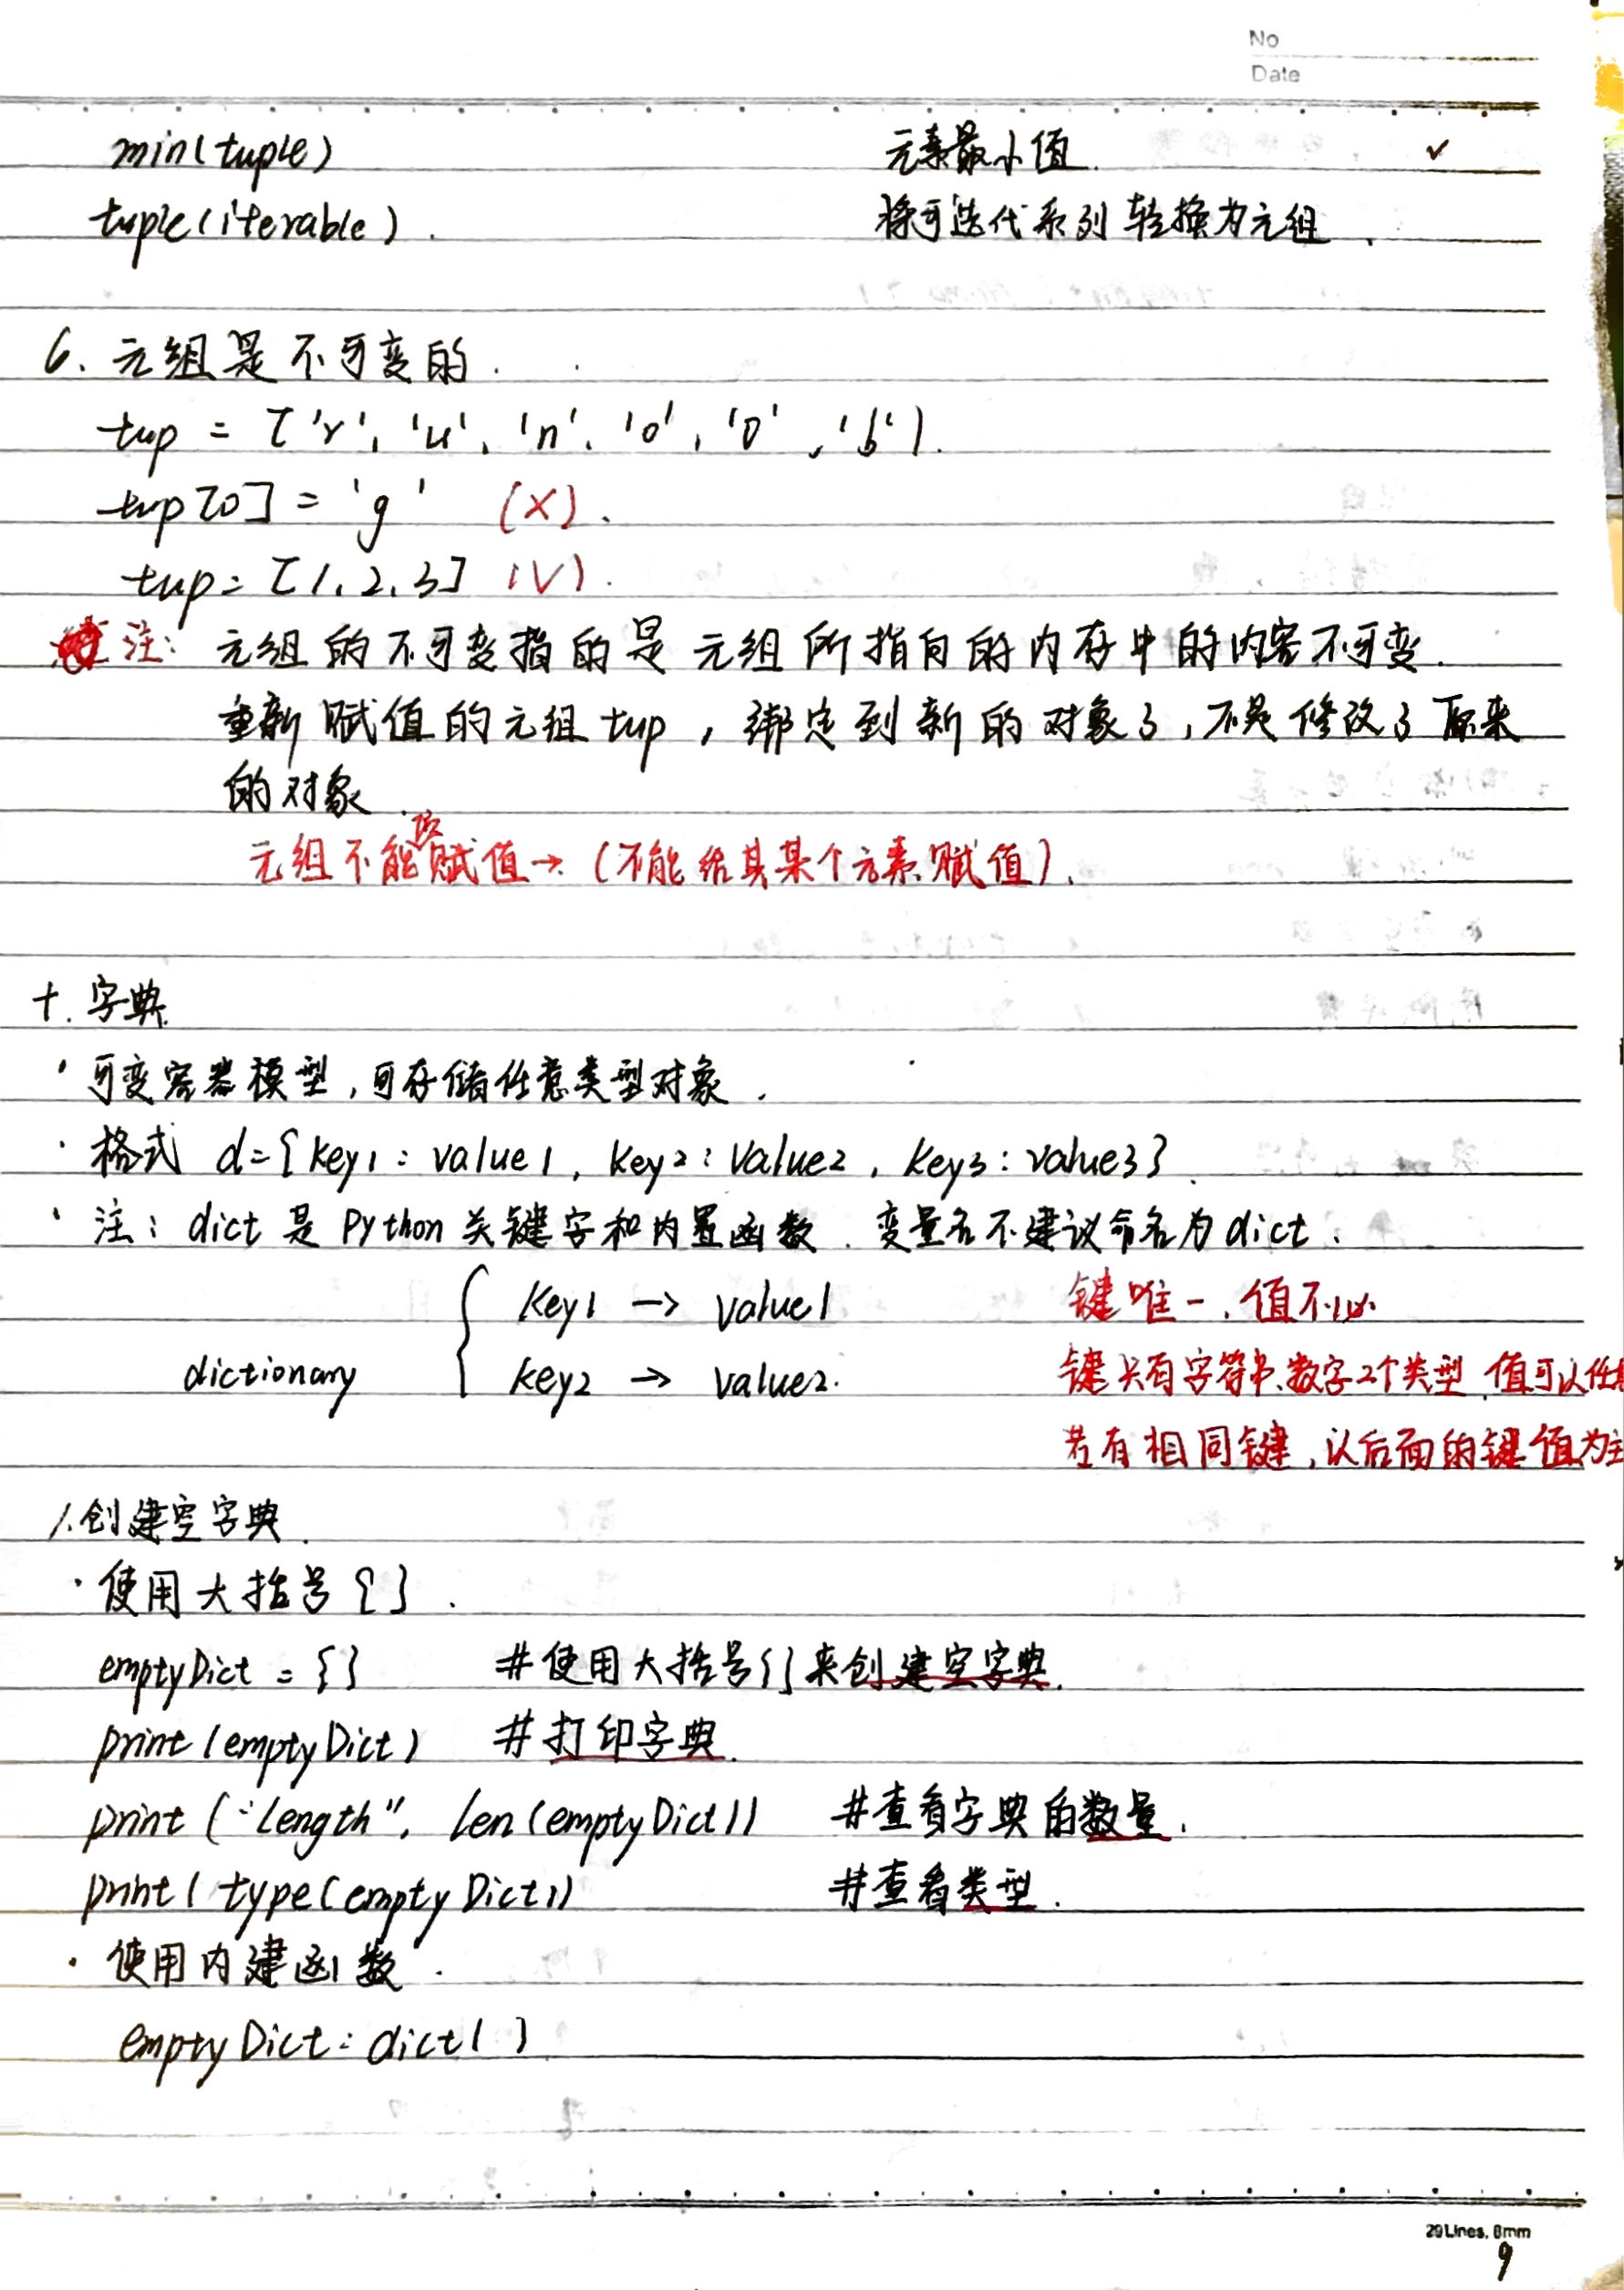 No
Date
min(tuple) 元素最小值. ✓
tuple(iterable). 将可迭代系列转换为元组.
6. 元组是不可变的.
tup = ['r', 'u', 'n', 'o', 'o', 'b').
tup[0] = 'g' (×).
tup = [1, 2, 3] (√).
注: 元组的不可变指的是元组所指向的内存中的内容不可变.
重新赋值的元组tup, 绑定到新的对象了, 不是修改了原来
的对象.
元组不能赋值→(不能给其某个元素赋值).
十. 字典.
· 可变容器模型, 可存储任意类型对象.
· 格式 d={key1: value1, key2: value2, key3: value3}.
· 注: dict 是 Python 关键字和内置函数. 变量名不建议命名为dict.
key1 → value1 键唯一, 值不必
dictionary { key2 → value2. 键只有字符串、数字2个类型 值可以任
若有相同键, 以后面的键值为主
1. 创建空字典.
· 使用大括号{}.
emptyDict = {} #使用大括号{}来创建空字典.
print(emptyDict) #打印字典.
print("Length", len(emptyDict)) #查看字典的数量.
print(type(emptyDict)) #查看类型.
· 使用内建函数.
emptyDict = dict()
29Lines, 8mm
9